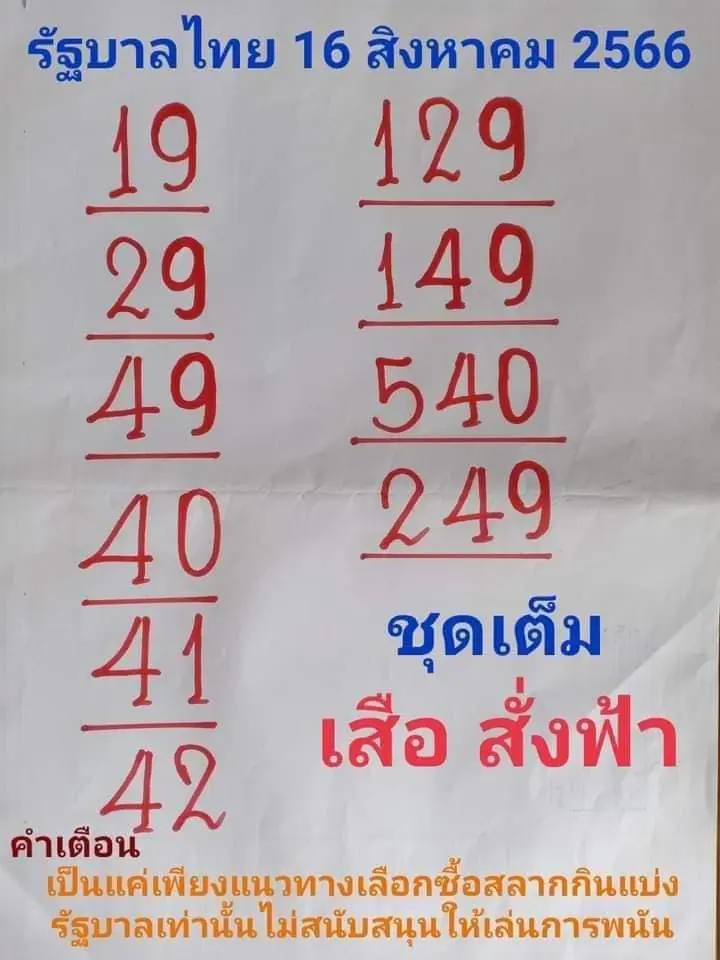 รัฐบาลไทย 16 สิงหาคม 2566
19
29
49
40
41
42
129
149
540
249
ชุดเต็ม
เสือ สั่งฟ้า
คำเตือน
เป็นแค่เพียงแนวทางเลือกซื้อสลากกินแบ่ง
รัฐบาลเท่านั้นไม่สนับสนุนให้เล่นการพนัน